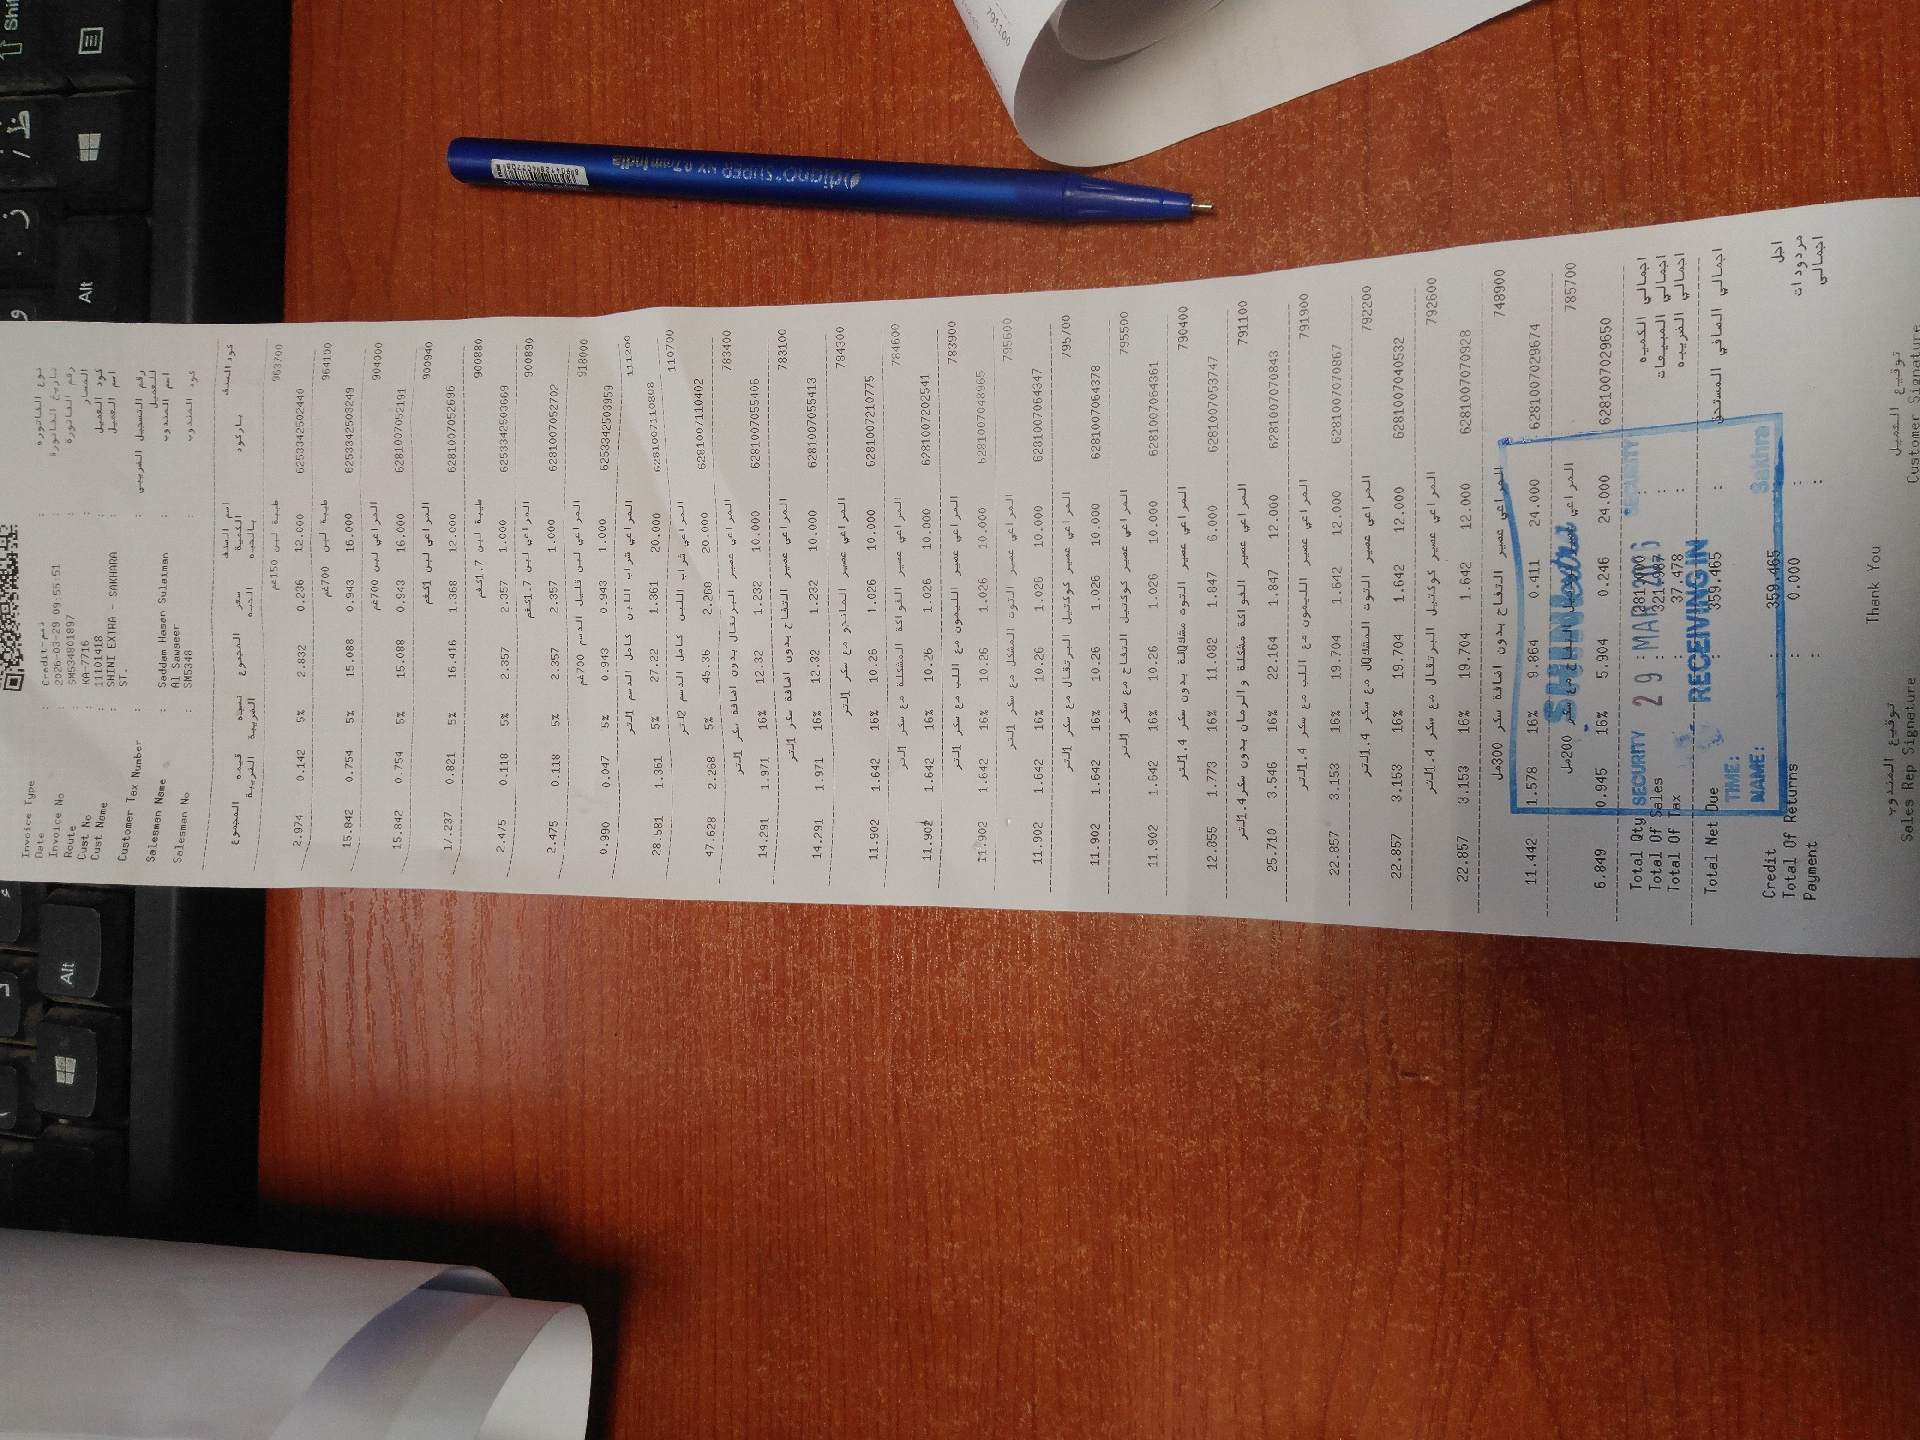 Invoice Type : Credit-ذمم نوع الفاتوره
Date : 2026-03-29 09:55:51 تاريخ الفاتورة
Invoice No : SM534801897 رقم الفاتورة
Route : KA-77116 المسار
Cust No : 11101418 كود العميل
Cust Name : SHINI EXTRA - SAKHARA اسم العميل
ST.
Customer Tax Number : رقم التسجيل الضريبي للعميل
Salesman Name : Saddam Hasan Sulaiman اسم المندوب
Al Sawaeer
Salesman No : SM5348 كود المندوب
المجموع قيمه الضريبة نسبه الضريبة المجموع سعر الحبه الكمية بالحبه اسم الصنف باركود كود الصنف
طيبة لبن 150غم 963700
2.974 0.142 5% 2.832 0.236 12.000 6253342502440
طيبة لبن 700غم 964100
15.842 0.754 5% 15.088 0.943 16.000 6253342503249
المراعي لبن 700غم 904000
15.842 0.754 5% 15.088 0.943 16.000 6281007052191
المراعي لبن 1كغم 900940
17.237 0.821 5% 16.416 1.368 12.000 6281007052696
طيبة لبن 1.7كغم 900880
2.475 0.118 5% 2.357 2.357 1.000 6253342503669
المراعي لبن 1.7كغم 900890
2.475 0.118 5% 2.357 2.357 1.000 6281007052702
المراعي لبن قليل الدسم 700غم 918000
0.990 0.047 5% 0.943 0.943 1.000 6253342503959
المراعي شراب اللبن كامل الدسم 1لتر 111200
28.581 1.361 5% 27.22 1.361 20.000 6281007110808
المراعي شراب اللبن كامل الدسم 2لتر 110700
47.628 2.268 5% 45.36 2.268 20.000 6281007110402
المراعي عصير البرتقال بدون اضافه سكر 1لتر 783400
14.291 1.971 16% 12.32 1.232 10.000 6281007055406
المراعي عصير التفاح بدون اضافة سكر 1لتر 783100
14.291 1.971 16% 12.32 1.232 10.000 6281007055413
المراعي عصير المانجو مع سكر 1لتر 784300
11.902 1.642 16% 10.26 1.026 10.000 6281007210775
المراعي عصير الفواكة المشكله مع سكر 1لتر 784600
11.902 1.642 16% 10.26 1.026 10.000 6281007202541
المراعي عصير الليمون مع اللب مع سكر 1لتر 783900
11.902 1.642 16% 10.26 1.026 10.000 6281007048965
المراعي عصير التوت المشكل مع سكر 1لتر 795600
11.902 1.642 16% 10.26 1.026 10.000 6281007064347
المراعي عصير كوكتيل البرتقال مع سكر 1لتر 795700
11.902 1.642 16% 10.26 1.026 10.000 6281007064378
المراعي عصير كوكتيل التفاح مع سكر 1لتر 795500
11.902 1.642 16% 10.26 1.026 10.000 6281007064361
المراعي عصير التوت بدون سكر 1.4لتر 790400
12.855 1.773 16% 11.082 1.847 6.000 6281007053747
المراعي عصير الفواكة مشكلة والرمان بدون سكر 1.4لتر 791100
25.710 3.546 16% 22.164 1.847 12.000 6281007070843
المراعي عصير الليمون مع اللب مع سكر 1.4لتر 791900
22.857 3.153 16% 19.704 1.642 12.000 6281007070867
المراعي عصير التوت المشكل مع سكر 1.4لتر 792200
22.857 3.153 16% 19.704 1.642 12.000 6281007040532
المراعي عصير كوكتيل البرتقال مع سكر 1.4لتر 792600
22.857 3.153 16% 19.704 1.642 12.000 6281007070928
المراعي عصير التفاح بدون اضافة سكر 300مل 748900
11.442 1.578 16% 9.864 0.411 24.000 6281007029674
المراعي مع سكر 200مل 785700
6.849 0.945 16% 5.904 0.246 24.000 6281007029650
Total Qty : اجمالي الكميه
Total Of Sales : 321.987 اجمالي المبيعات
Total Of Tax : 37.478 اجمالي الضريبه
Total Net Due : 359.465 اجمالي الصافي المستحق
Credit : 359.465 اجل
Total Of Returns : 0.000 مردودات
Payment : اجمالي
SECURITY SECURITY
29 MAR
RECEIVING IN
TIME:
NAME:
Sakhra
توقيع المندوب توقيع العميل
Sales Rep Signature Customer Signature
Thank You
digno SUPER NX 0.7mm India
791100
Alt
Alt
Shift